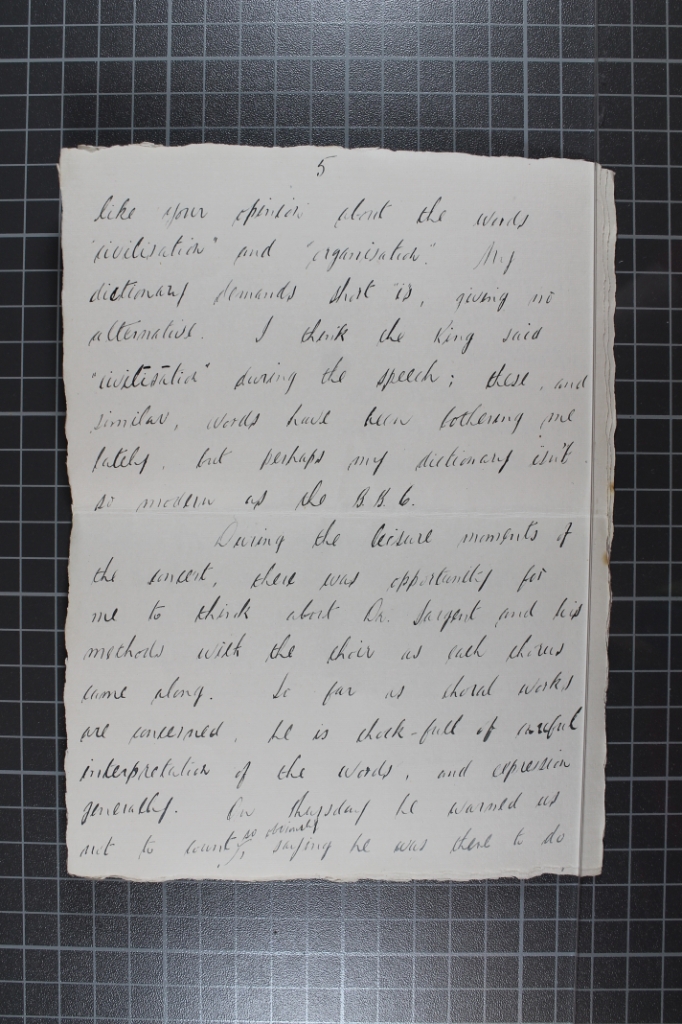 5
like your opinion about the words
"civilisation" and "organisation". My
dictionary demands short "is", giving no
alternative. I think the King said
"civilisation" during the speech; these, and
similar, words have been bothering me
lately, but perhaps my dictionary isn't
so modern as the B.B.C.
During the leisure moments of
the concert, there was opportunity for
me to think about Dr. Sargent and his
methods with the choir as each chorus
came along. So far as choral works
are concerned, he is chock-full of careful
interpretation of the words, and expression
generally. On Thursday he warned us
not to count so obviously, saying he was there to do